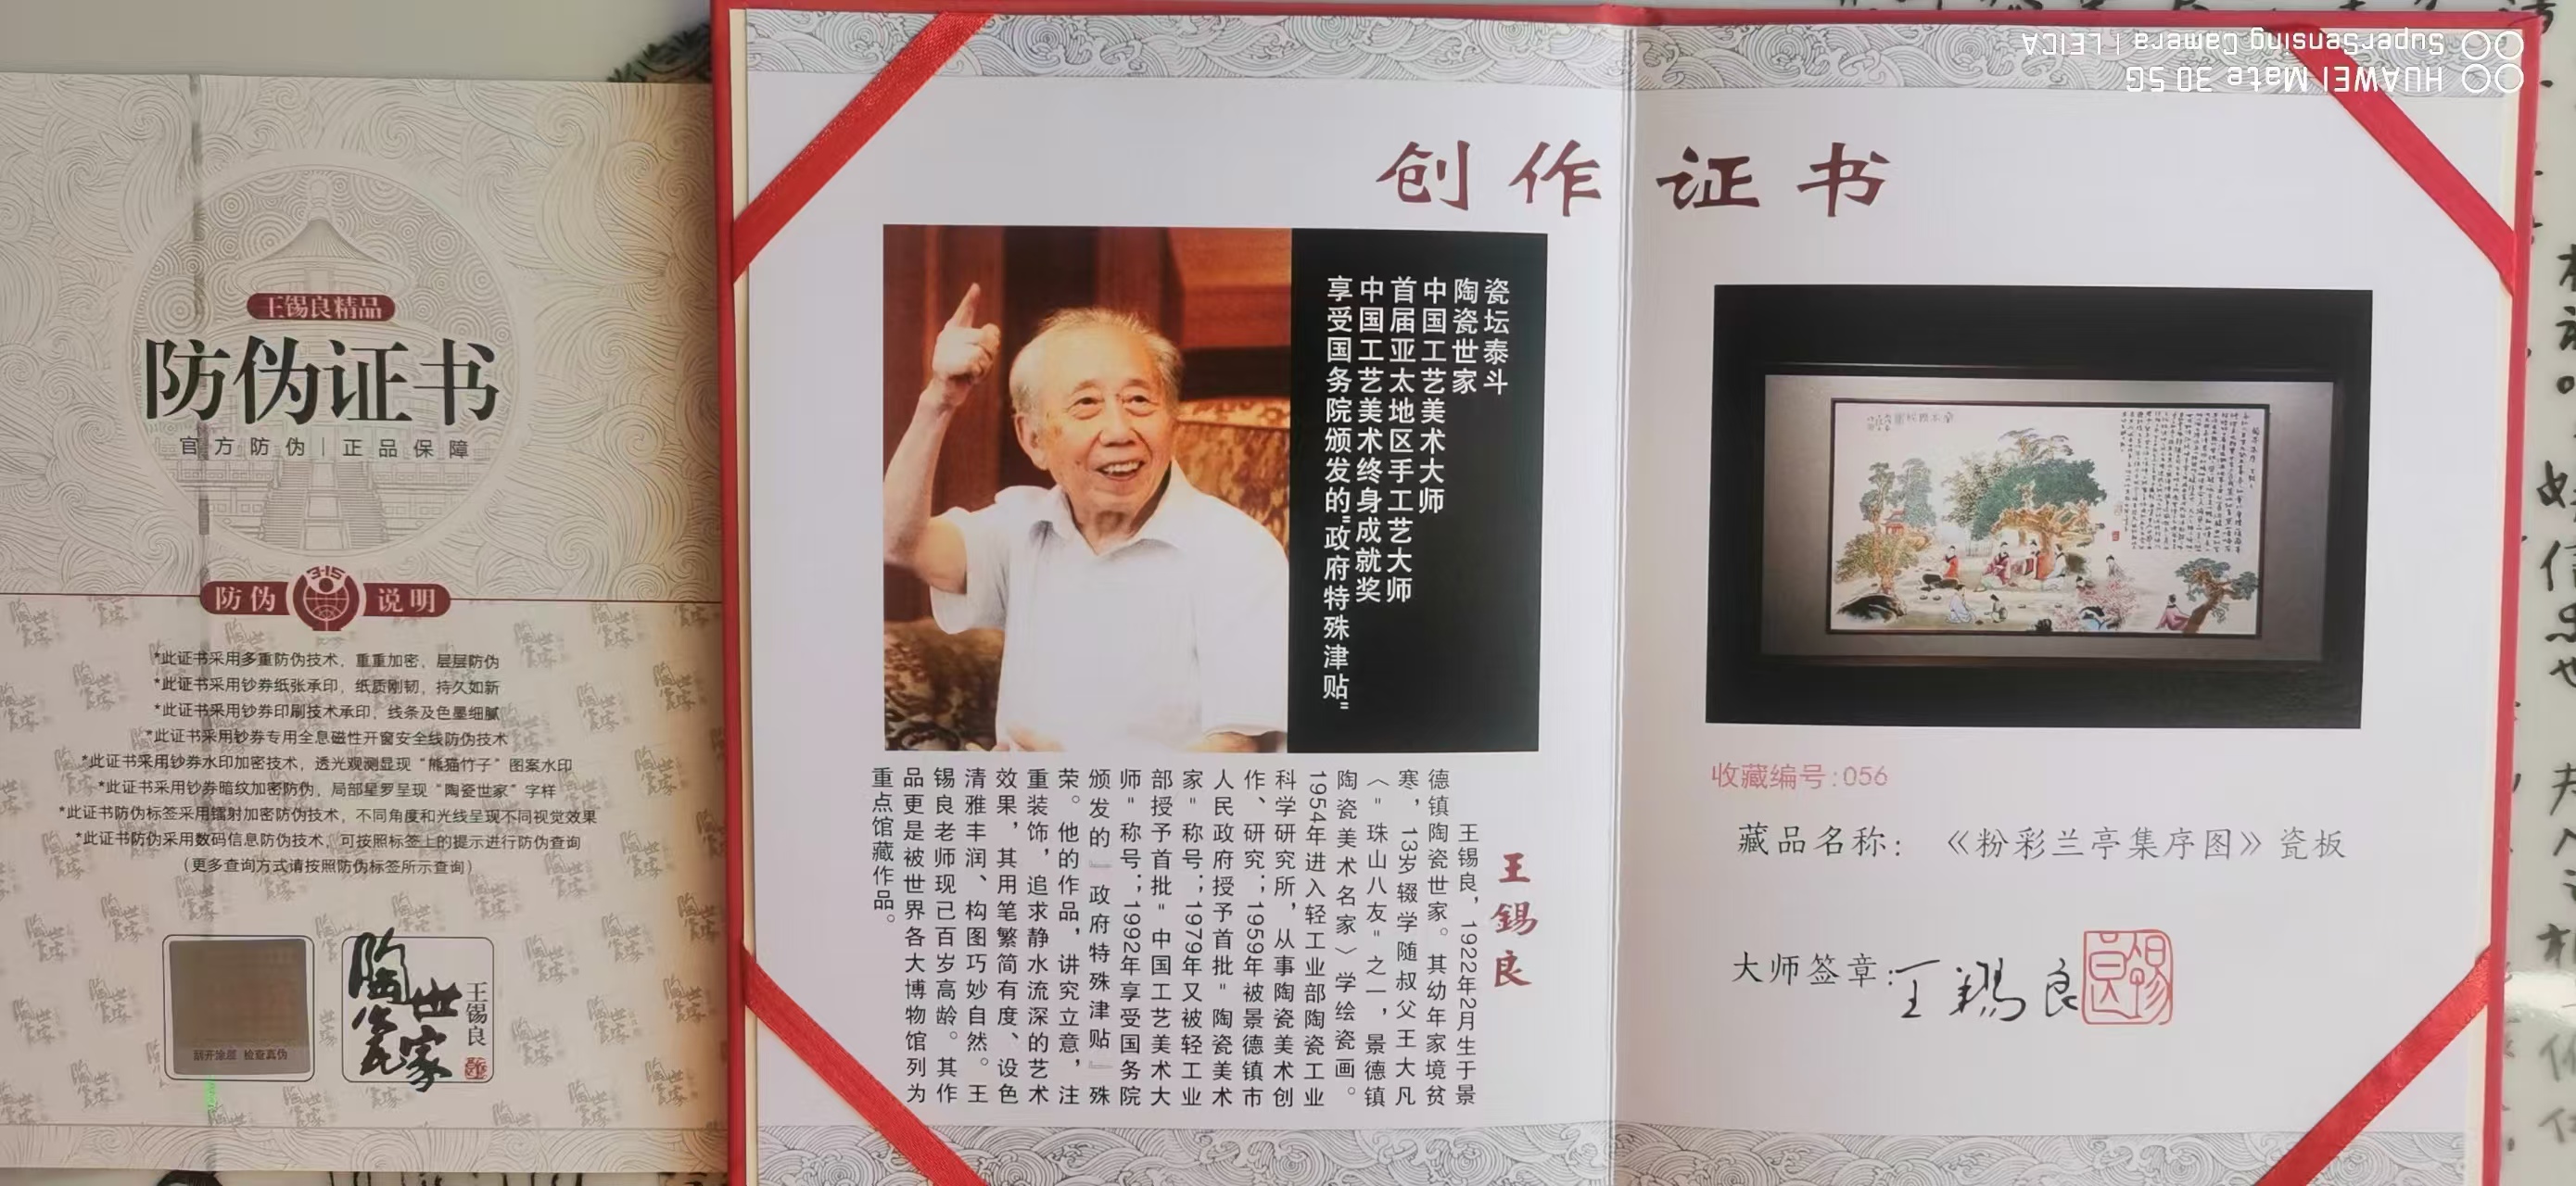 王锡良精品
防伪证书
官方防伪｜正品保障
防伪
3·15
说明
*此证书采用多重防伪技术，重重加密，层层防伪
*此证书采用钞券纸张承印，纸质刚韧，持久如新
*此证书采用钞券印刷技术承印，线条及色墨细腻
*此证书采用钞券专用全息磁性开窗安全线防伪技术
*此证书采用钞券水印加密技术，透光观测显现“熊猫竹子”图案水印
*此证书采用钞券暗纹加密防伪，局部星罗呈现“陶瓷世家”字样
*此证书防伪标签采用镭射加密防伪技术，不同角度和光线呈现不同视觉效果
*此证书防伪采用数码信息防伪技术，可按照标签上的提示进行防伪查询
（更多查询方式请按照防伪标签所示查询）
刮开涂层 检查真伪
陶瓷世家
王锡良
创作证书
瓷坛泰斗
陶瓷世家
中国工艺美术大师
首届亚太地区手工艺大师
中国工艺美术终身成就奖
享受国务院颁发的"政府特殊津贴"
王錫良
王锡良，1922年2月生于景
德镇陶瓷世家。其幼年家境贫
寒，13岁辍学随叔父王大凡
〈"珠山八友"之一，景德镇
陶瓷美术名家〉学绘瓷画。
1954年进入轻工业部陶瓷工业
科学研究所，从事陶瓷美术创
作、研究；1959年被景德镇市
人民政府授予首批"陶瓷美术
家"称号；1979年又被轻工业
部授予首批"中国工艺美术大
师"称号；1992年享受国务院
颁发的『政府特殊津贴』殊
荣。他的作品，讲究立意，注
重装饰，追求静水流深的艺术
效果，其用笔繁简有度、设色
清雅丰润、构图巧妙自然。王
锡良老师现已百岁高龄。其作
品更是被世界各大博物馆列为
重点馆藏作品。
收藏编号:056
藏品名称：《粉彩兰亭集序图》瓷板
大师签章:王锡良
锡良
HUAWEI Mate 30 5G
SuperSensing Camera | LEICA